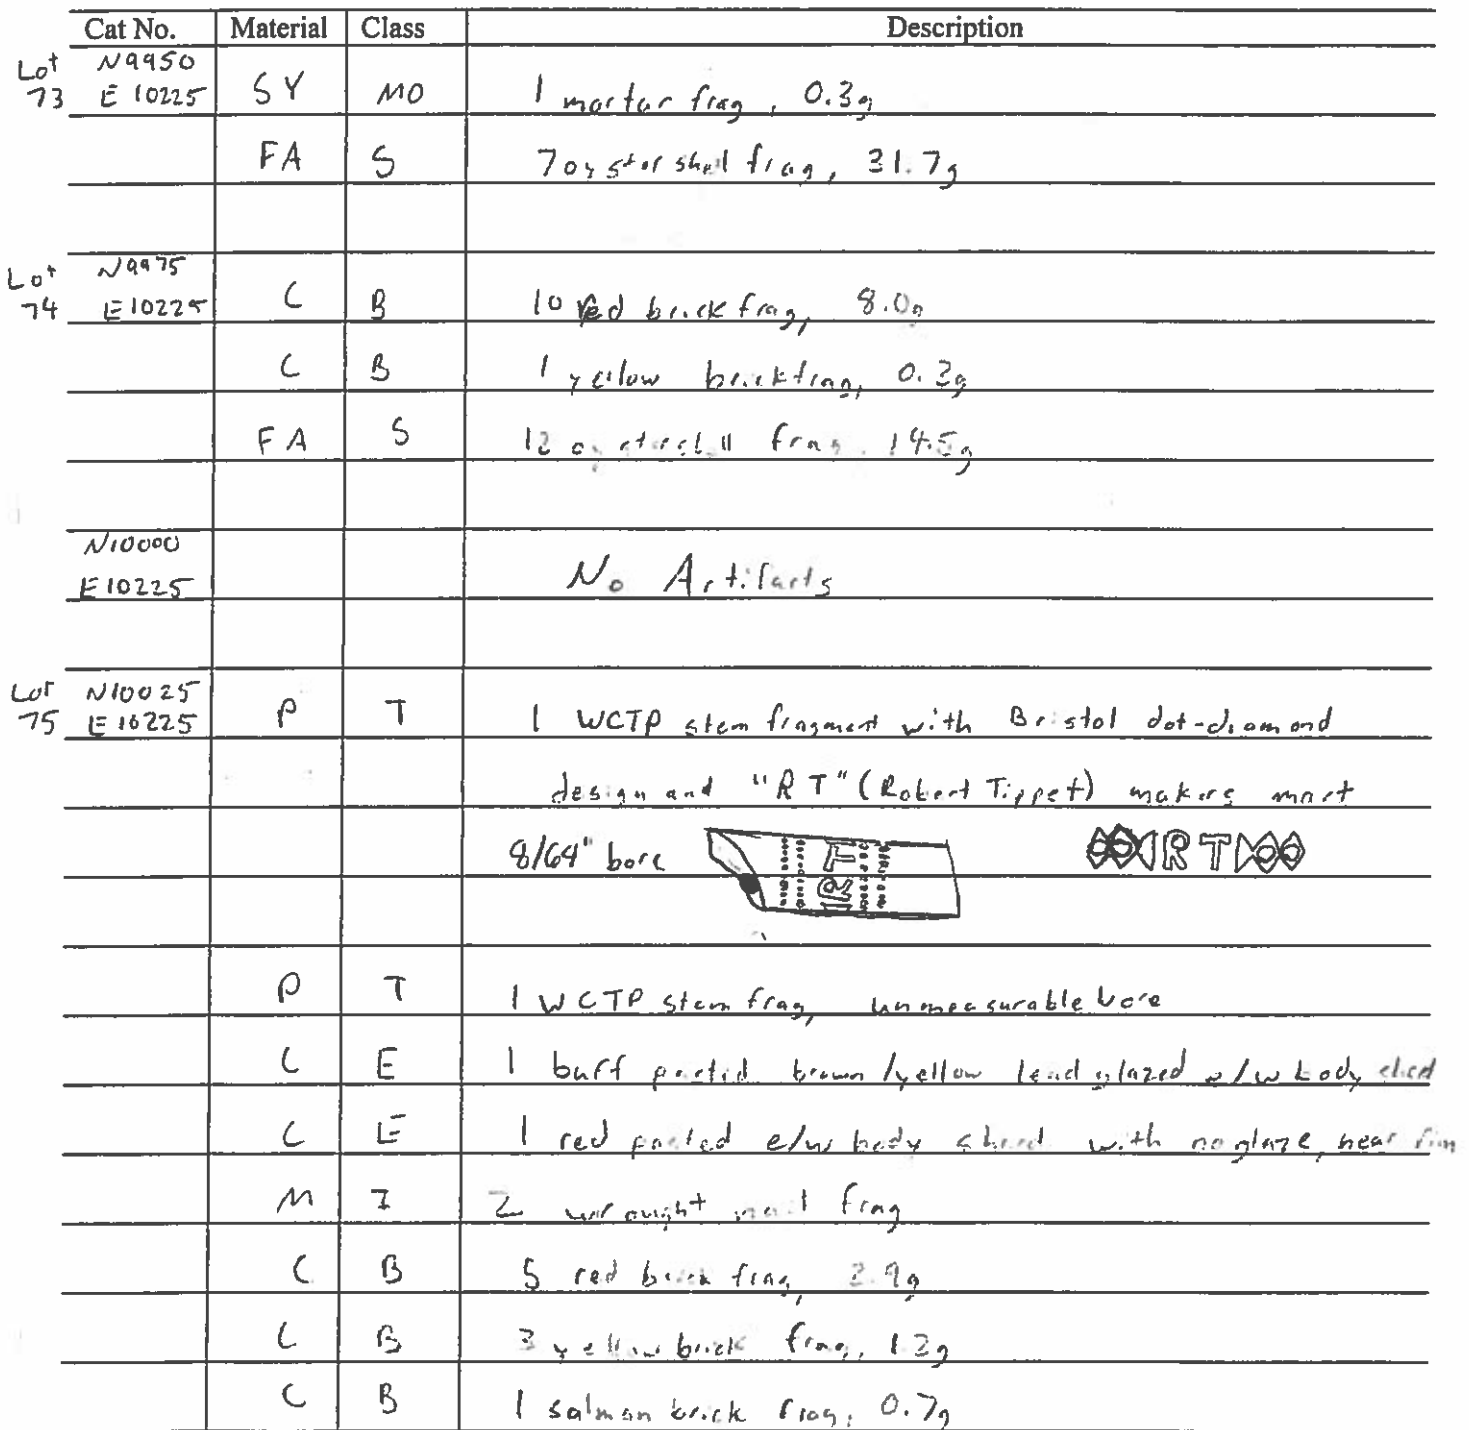 Cat No. Material Class Description
Lot N9950
73 E 10225 SY MO 1 mortar frag, 0.3g
FA S 7 oyster shell frag, 31.7g
Lot N9975
74 E10225 C B 10 red brick frag, 8.0g
C B 1 yellow brick frag, 0.2g
FA S 12 oyster shell frag, 14.5g
N10000
E10225 No Artifacts
Lot N10025
75 E 10225 P T 1 WCTP stem fragment with Bristol dot-diamond
design and "RT" (Robert Tippet) makers mark
8/64" bore RT RT
P T 1 WCTP stem frag, unmeasurable bore
C E 1 buff pasted brown/yellow lead glazed e/w body sherd
C E 1 red pasted e/w body sherd with no glaze, near rim
M I 2 wrought nail frag
C B 5 red brick frag, 2.9g
C B 3 yellow brick frag, 1.2g
C B 1 salmon brick frag, 0.7g